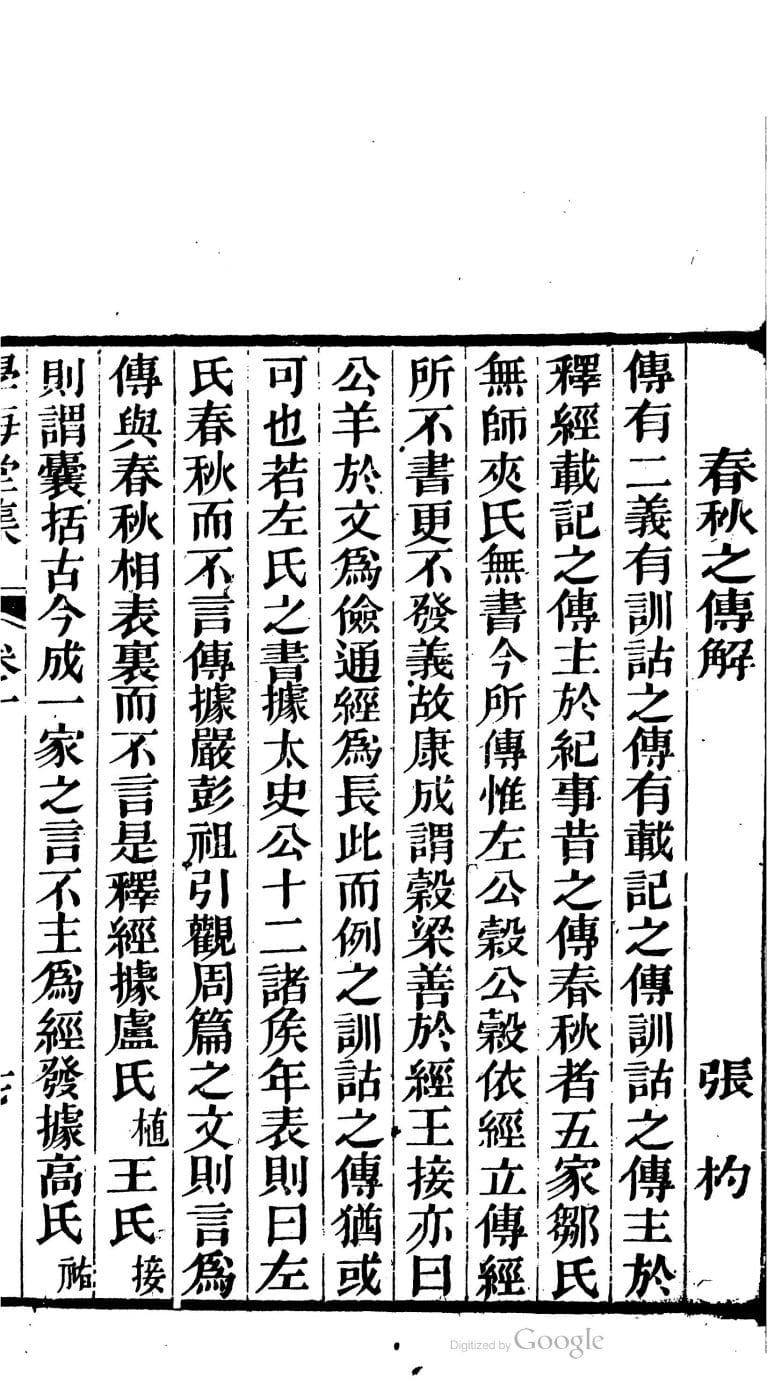 春秋之傳解 張杓
傳有二義有訓詁之傳有載記之傳訓詁之傳主於
釋經載記之傳主於紀事昔之傳春秋者五家鄒氏
無師夾氏無書今所傳惟左公穀公穀依經立傳經
所不書更不發義故康成謂穀梁善於經王接亦曰
公羊於文爲儉通經爲長此而例之訓詁之傳猶或
可也若左氏之書據太史公十二諸矦年表則曰左
氏春秋而不言傳據嚴彭祖引觀周篇之文則言爲
傳與春秋相表裏而不言是釋經據盧氏植王氏接
則謂囊括古今成一家之言不主爲經發據高氏祐
學海堂集 卷一
Digitized by Google